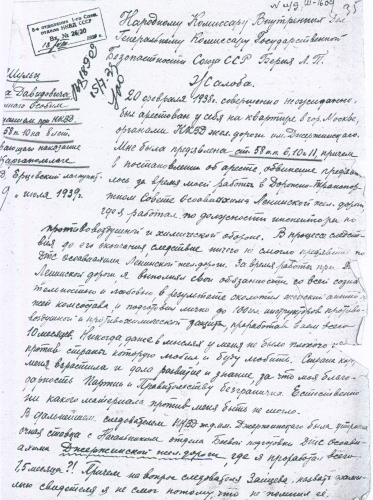 № 4/9 Ш-1604
35
3-е отделение 1-го Спец.
отдела НКВД СССР
Вх. № 28/20
1939 г.
Народному Комиссару Внутренних Дел
Генеральному Комиссару Государственной
Безопасности Союза ССР Берия Л. П.
Шульц
Давидовича
Особым
при НКВД
58 п 10 на 8 лет.
наказание
Каргопольлаге
Ерцевский лагпункт.
9 июля 1939 г.
Жалоба
20 февраля 1938 г. совершенно неожиданно,
был арестован у себя на квартире в гор. Москве,
органами НКВД жел. дороги им. Дзержинского.
Мне была предъявлена ст 58 п 6, 10 и 11, причем
в постановлении об аресте, обвинение
лось за время моей работы в Дорожно-Транспорт
ном Совете Осоавиахима Ленинской жел. дороги,
где я работал по должности инспектора по
противовоздушной и химической обороне. В процессе следст
вия до его окончания следствие ничего не смогло предъявить по
ДТС осоавиахима Ленинской жел. дороги. За время работы при Д.
Ленинской дороги я выполнял свои обязанности со всей созна
тельностью и любовью в результате
и подготовил лично до 100 чел. инструкторов противо
воздушной и противохимической защиты, проработав всего
10 месяцев. Никогда, даже в мыслях у меня не было плохого
против страны которую люблю и буду любить. Страна кот.
меня взрастила и дала развитие и знание, за что моя благо
дарность Партии и Правительству безгранична. Естественно
ни какого материала против меня быть не могло.
В дальнейшем, следователем НКВД ж.д. им. Дзержинского была устроена
очная ставка с Начальником отдела Боевой подготовки ДТС осоави
ахима Дзержинской жел. дороги где я проработал всего
1,5 месяца?! Причем на вопрос следователя Зайцева, назвать
свидетеля я не смог потому что не помнил её.